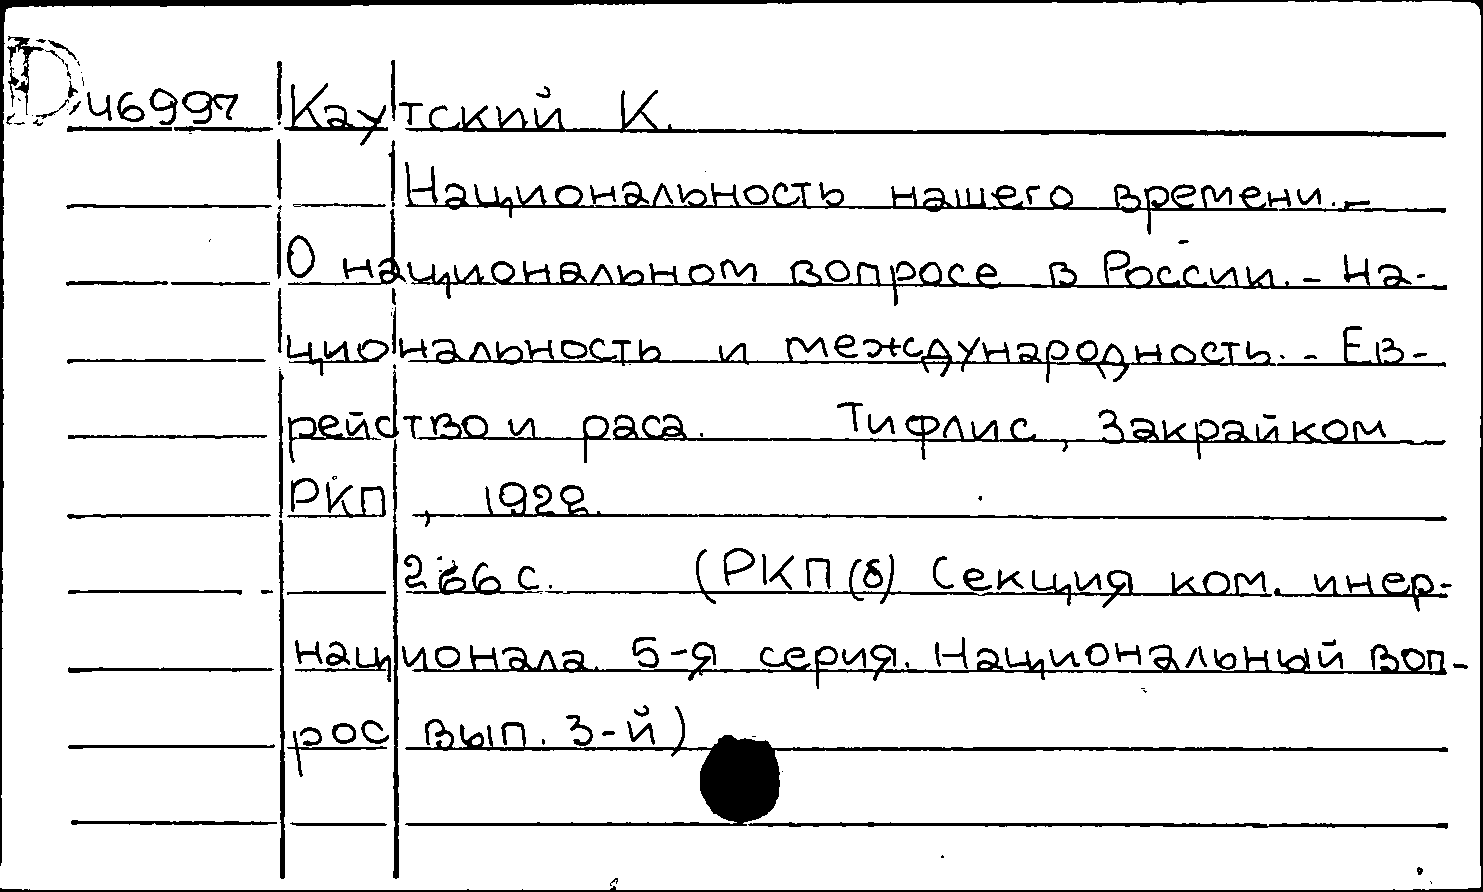 D 46997 Каутский К.
Национальность нашего времени. -
О национальном вопросе в России. - На-
циональность и международность. - Ев-
рейство и раса. Тифлис, Закрайком
РКП, 1922.
266 с. (РКП(б) Секция ком. инер-
национала. 5-я серия. Национальный воп-
рос вып. 3-й)